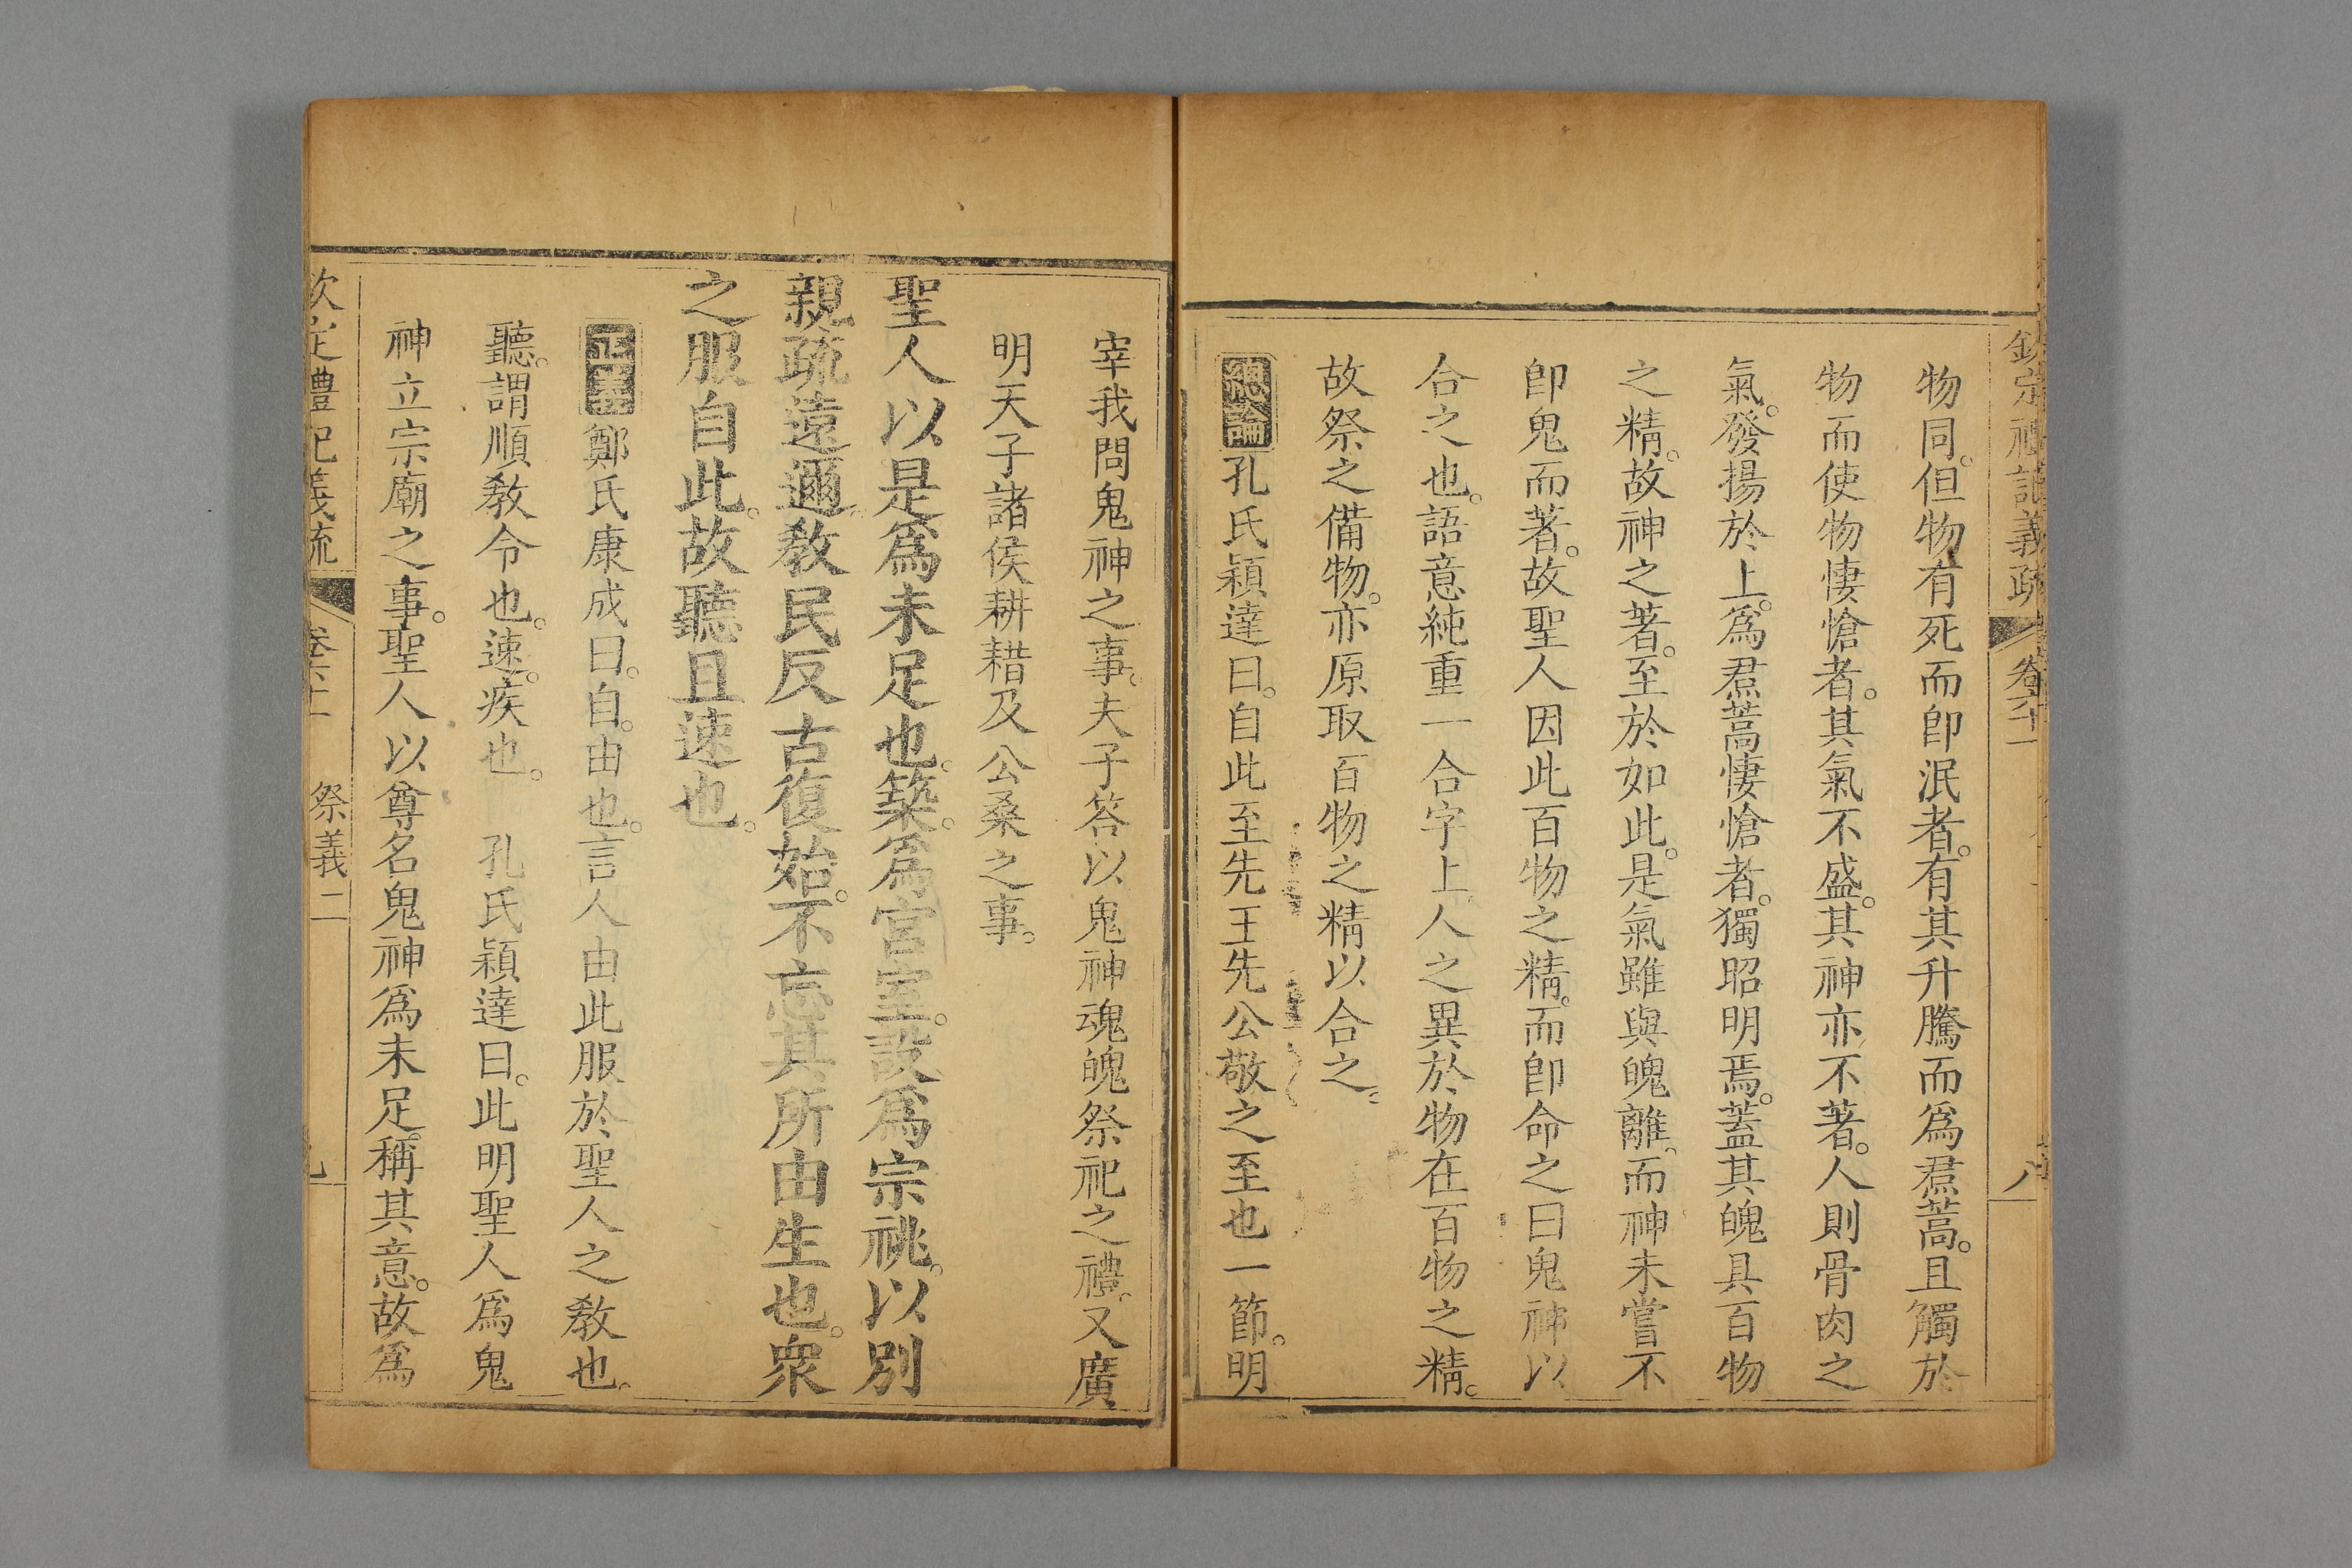 欽定禮記義疏 卷六十一 八
物同。但物有死而卽泯者。有其升騰而爲焄蒿。且觸於
物而使物悽愴者。其氣不盛。其神亦不著。人則骨肉之
氣。發揚於上。爲焄蒿悽愴者。獨昭明焉。蓋其魄具百物
之精。故神之著。至於如此。是氣雖與魄離。而神未嘗不
卽鬼而著。故聖人因此百物之精。而卽命之曰鬼神以
合之也。語意純重一合字上人之異於物在百物之精。
故祭之備物。亦原取百物之精以合之。
總論孔氏穎達曰。自此至先王先公敬之至也一節。明
宰我問鬼神之事。夫子答以鬼神魂魄祭祀之禮。又廣
明天子諸侯耕耤及公桑之事。
聖人以是爲未足也。築爲宮室。設爲宗祧。以別
親疏遠邇。敎民反古復始。不忘其所由生也。衆
之服自此。故聽且速也。
正義鄭氏康成曰。自。由也。言人由此服於聖人之敎也。
聽。謂順敎令也。速。疾也。 孔氏穎達曰。此明聖人爲鬼
神立宗廟之事。聖人以尊名鬼神爲未足。稱其意。故爲
欽定禮記義疏 卷六十一 祭義二 九